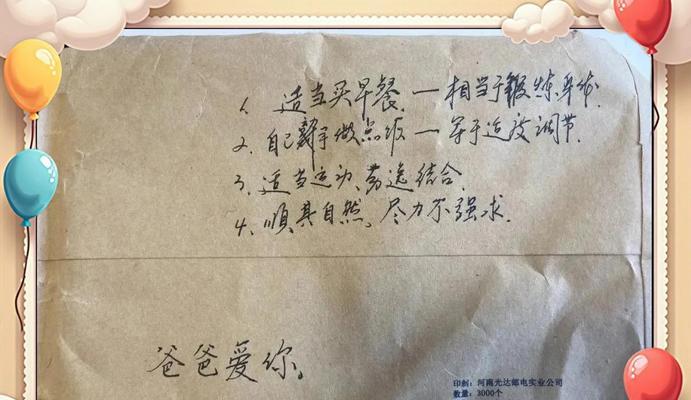 1、适当买早餐.一相当于锻炼身体.
2、自己亲手做点饭一等于适度调节.
3、适当运动、劳逸结合.
4、顺其自然。尽力不强求.
爸爸爱你。
印刷：河南光达邮电实业公司
数量：3000个